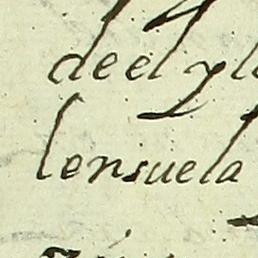 deel y l
lensuela